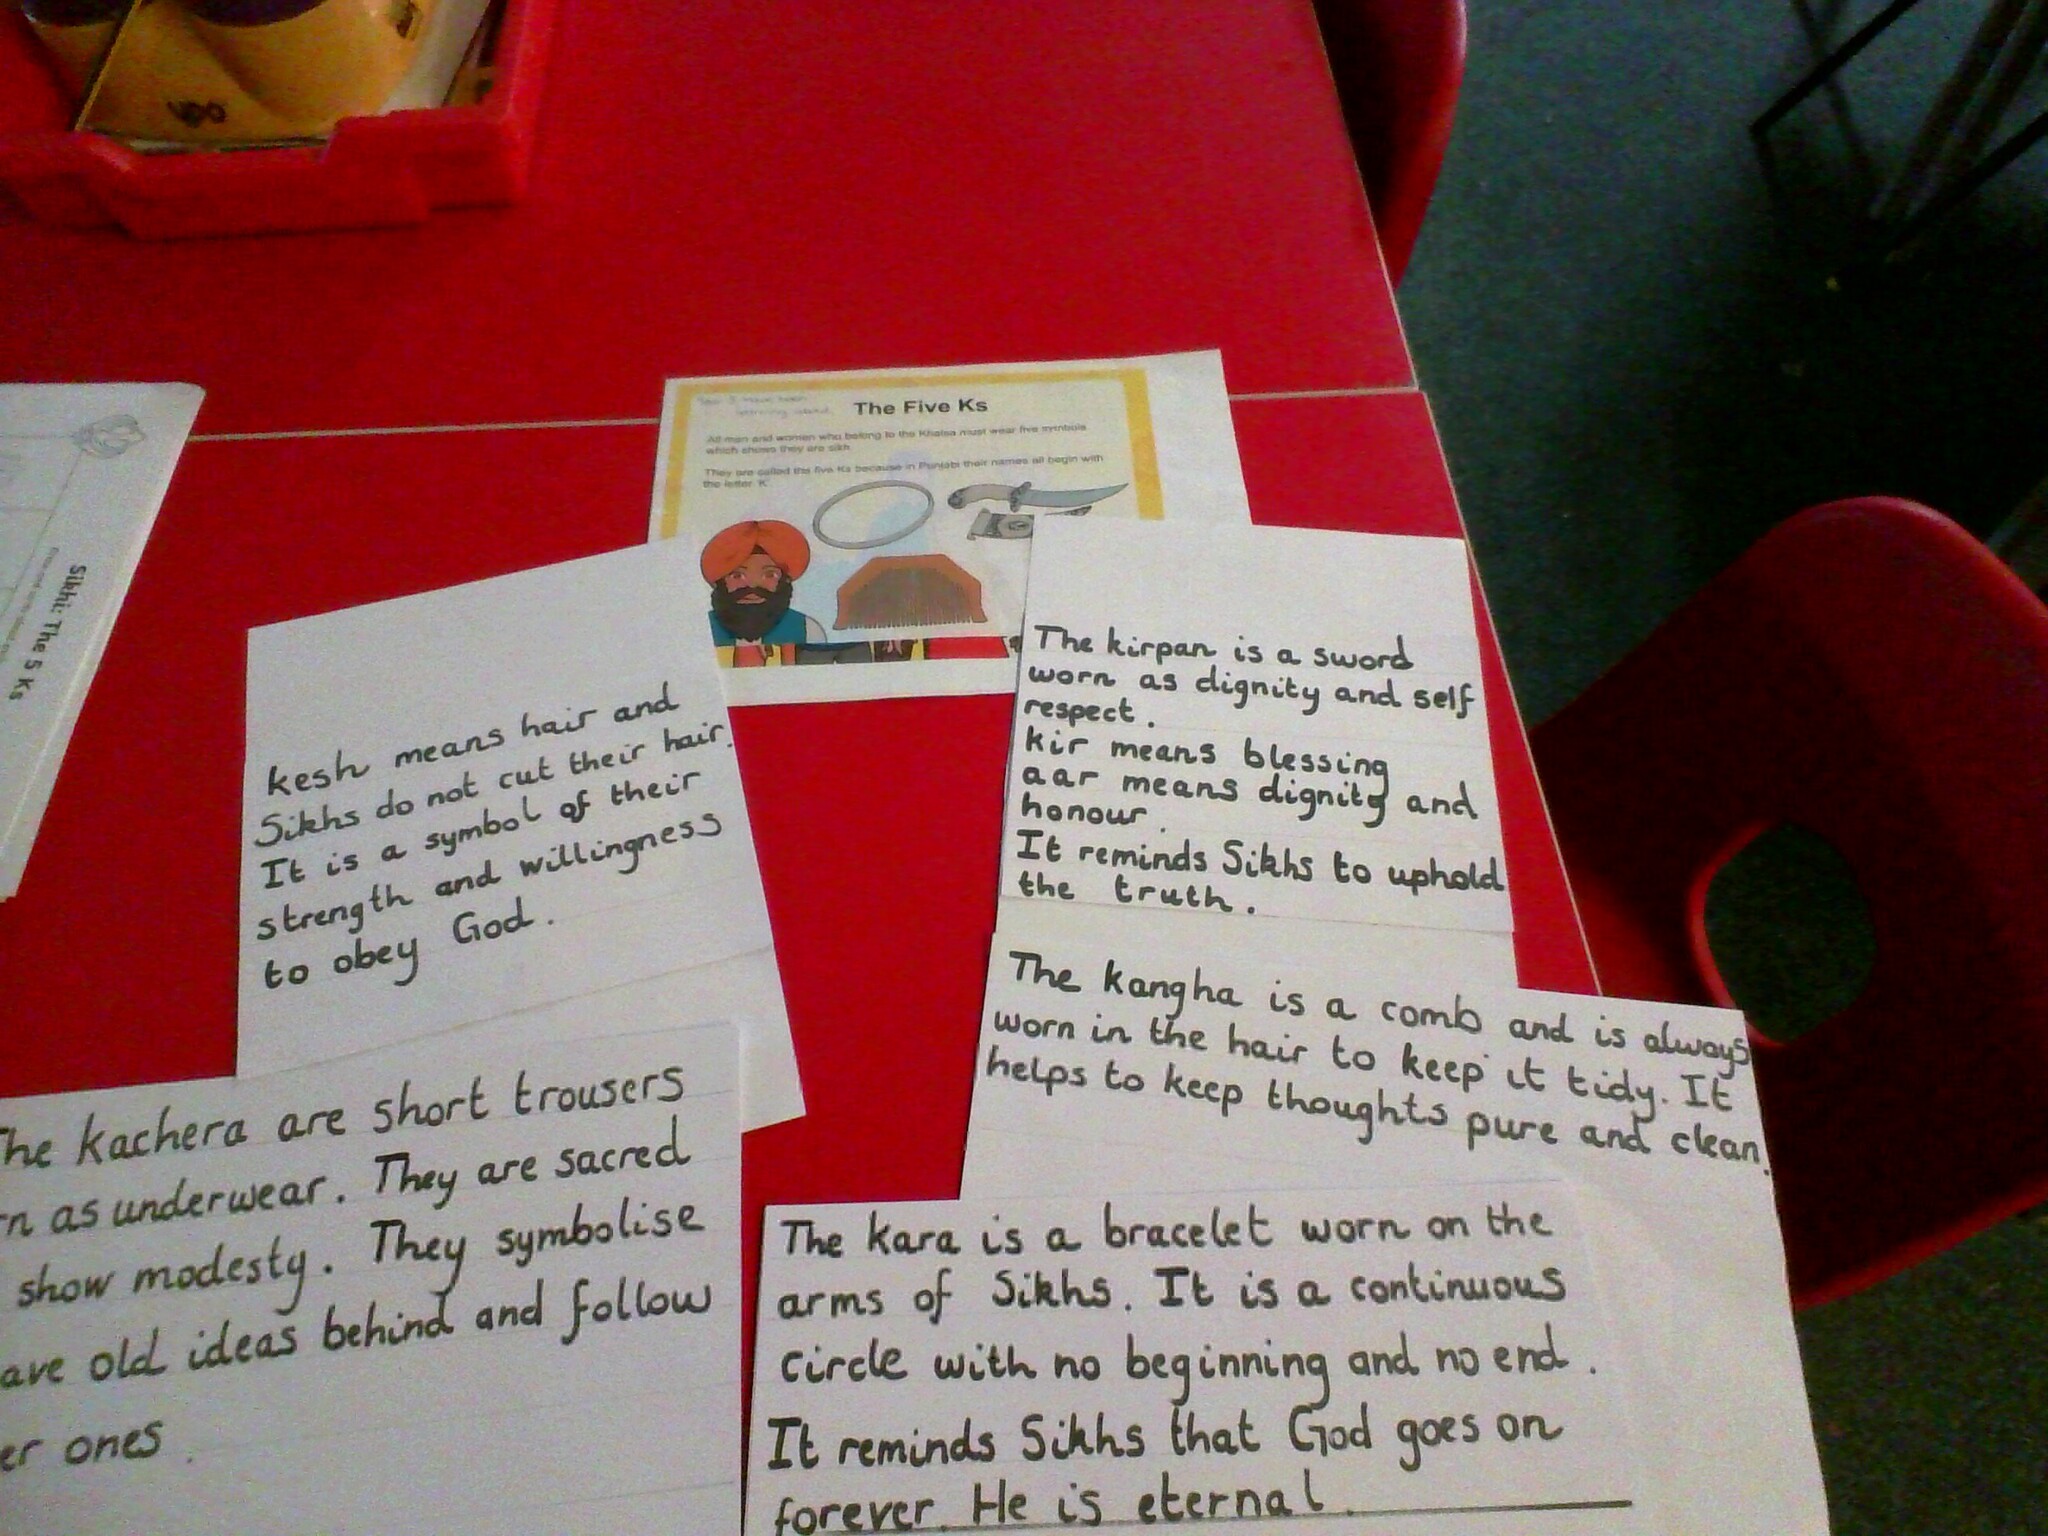 The Five Ks
All men and women who belong to the Khalsa must wear five symbols
which shows they are sikh
They are called the five Ks because in Punjabi their names all begin with
the letter 'K'
Sikhi: The 5 Ks
kesh means hair and
Sikhs do not cut their hair.
It is a symbol of their
strength and willingness
to obey God.
The kirpan is a sword
worn as dignity and self
respect.
kir means blessing
aar means dignity and
honour.
It reminds Sikhs to uphold
the truth.
The kangha is a comb and is always
worn in the hair to keep it tidy. It
helps to keep thoughts pure and clean.
The kachera are short trousers
as underwear. They are sacred
show modesty. They symbolise
old ideas behind and follow
ones.
The kara is a bracelet worn on the
arms of Sikhs. It is a continuous
circle with no beginning and no end.
It reminds Sikhs that God goes on
forever. He is eternal.